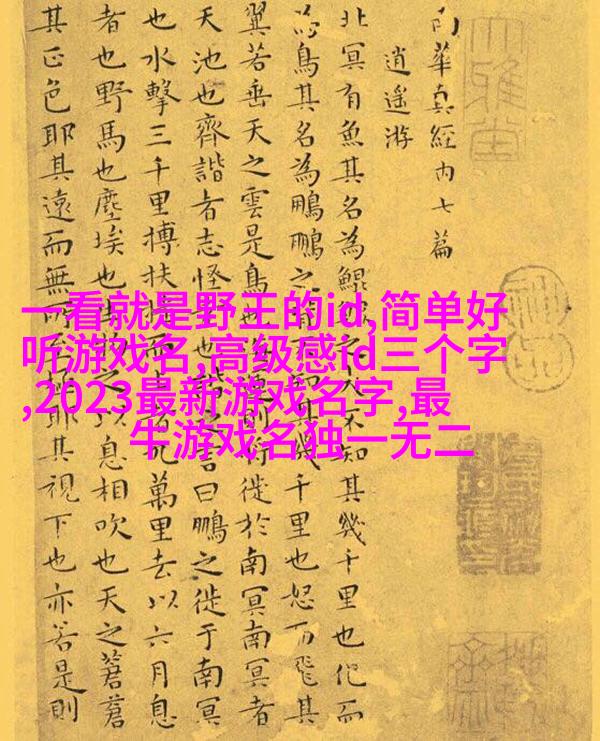 南華真經內七篇
逍遥游
北冥有魚其名為鯤之大不知其幾千里也化而
為鳥其名為鵬鵬之不知其幾千里也怒而飛其
翼若垂天之雲是鳥也則將徙於南冥南冥者
天池也齊諧者志怪也之言曰鵬之徙于南冥
也水擊三千里搏扶而者九萬里去以六月息
者也野馬也塵埃也物之以息相吹也天之蒼蒼
其正色耶其遠而無所至極耶其視下也亦若是則
一看就是野王的id,简单好
听游戏名,高级感id三个字
,2023最新游戏名字,最
牛游戏名独一无二